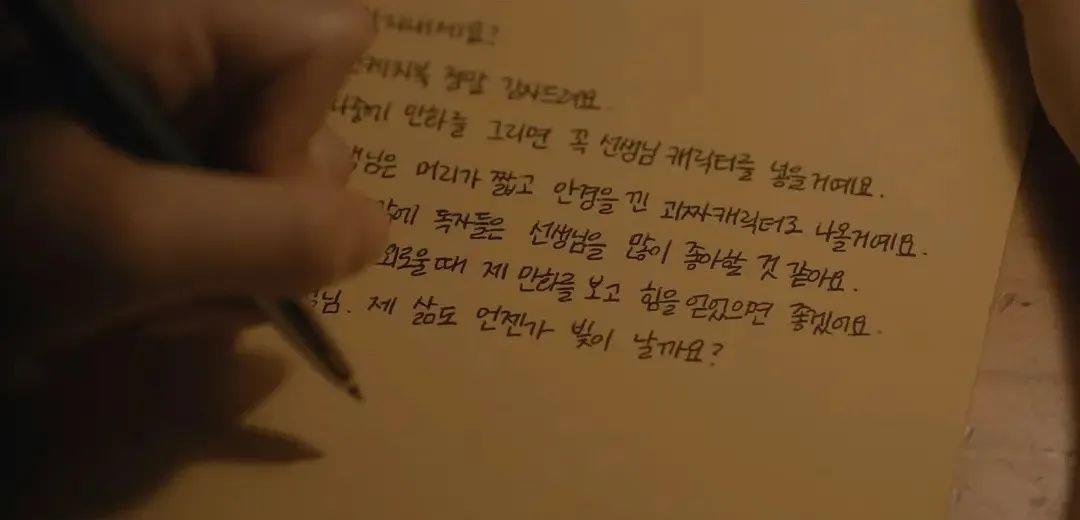 정말 감사드려요.
만화를 그리면 꼭 선생님 캐릭터를 넣을거예요.
머리가 짧고 안경을 낀 괴짜캐릭터로 나올거예요.
독자들은 선생님을 많이 좋아할 것 같아요.
외로울때 제 만화를 보고 힘을 얻었으면 좋겠어요.
제 삶도 언젠가 빛이 날까요?